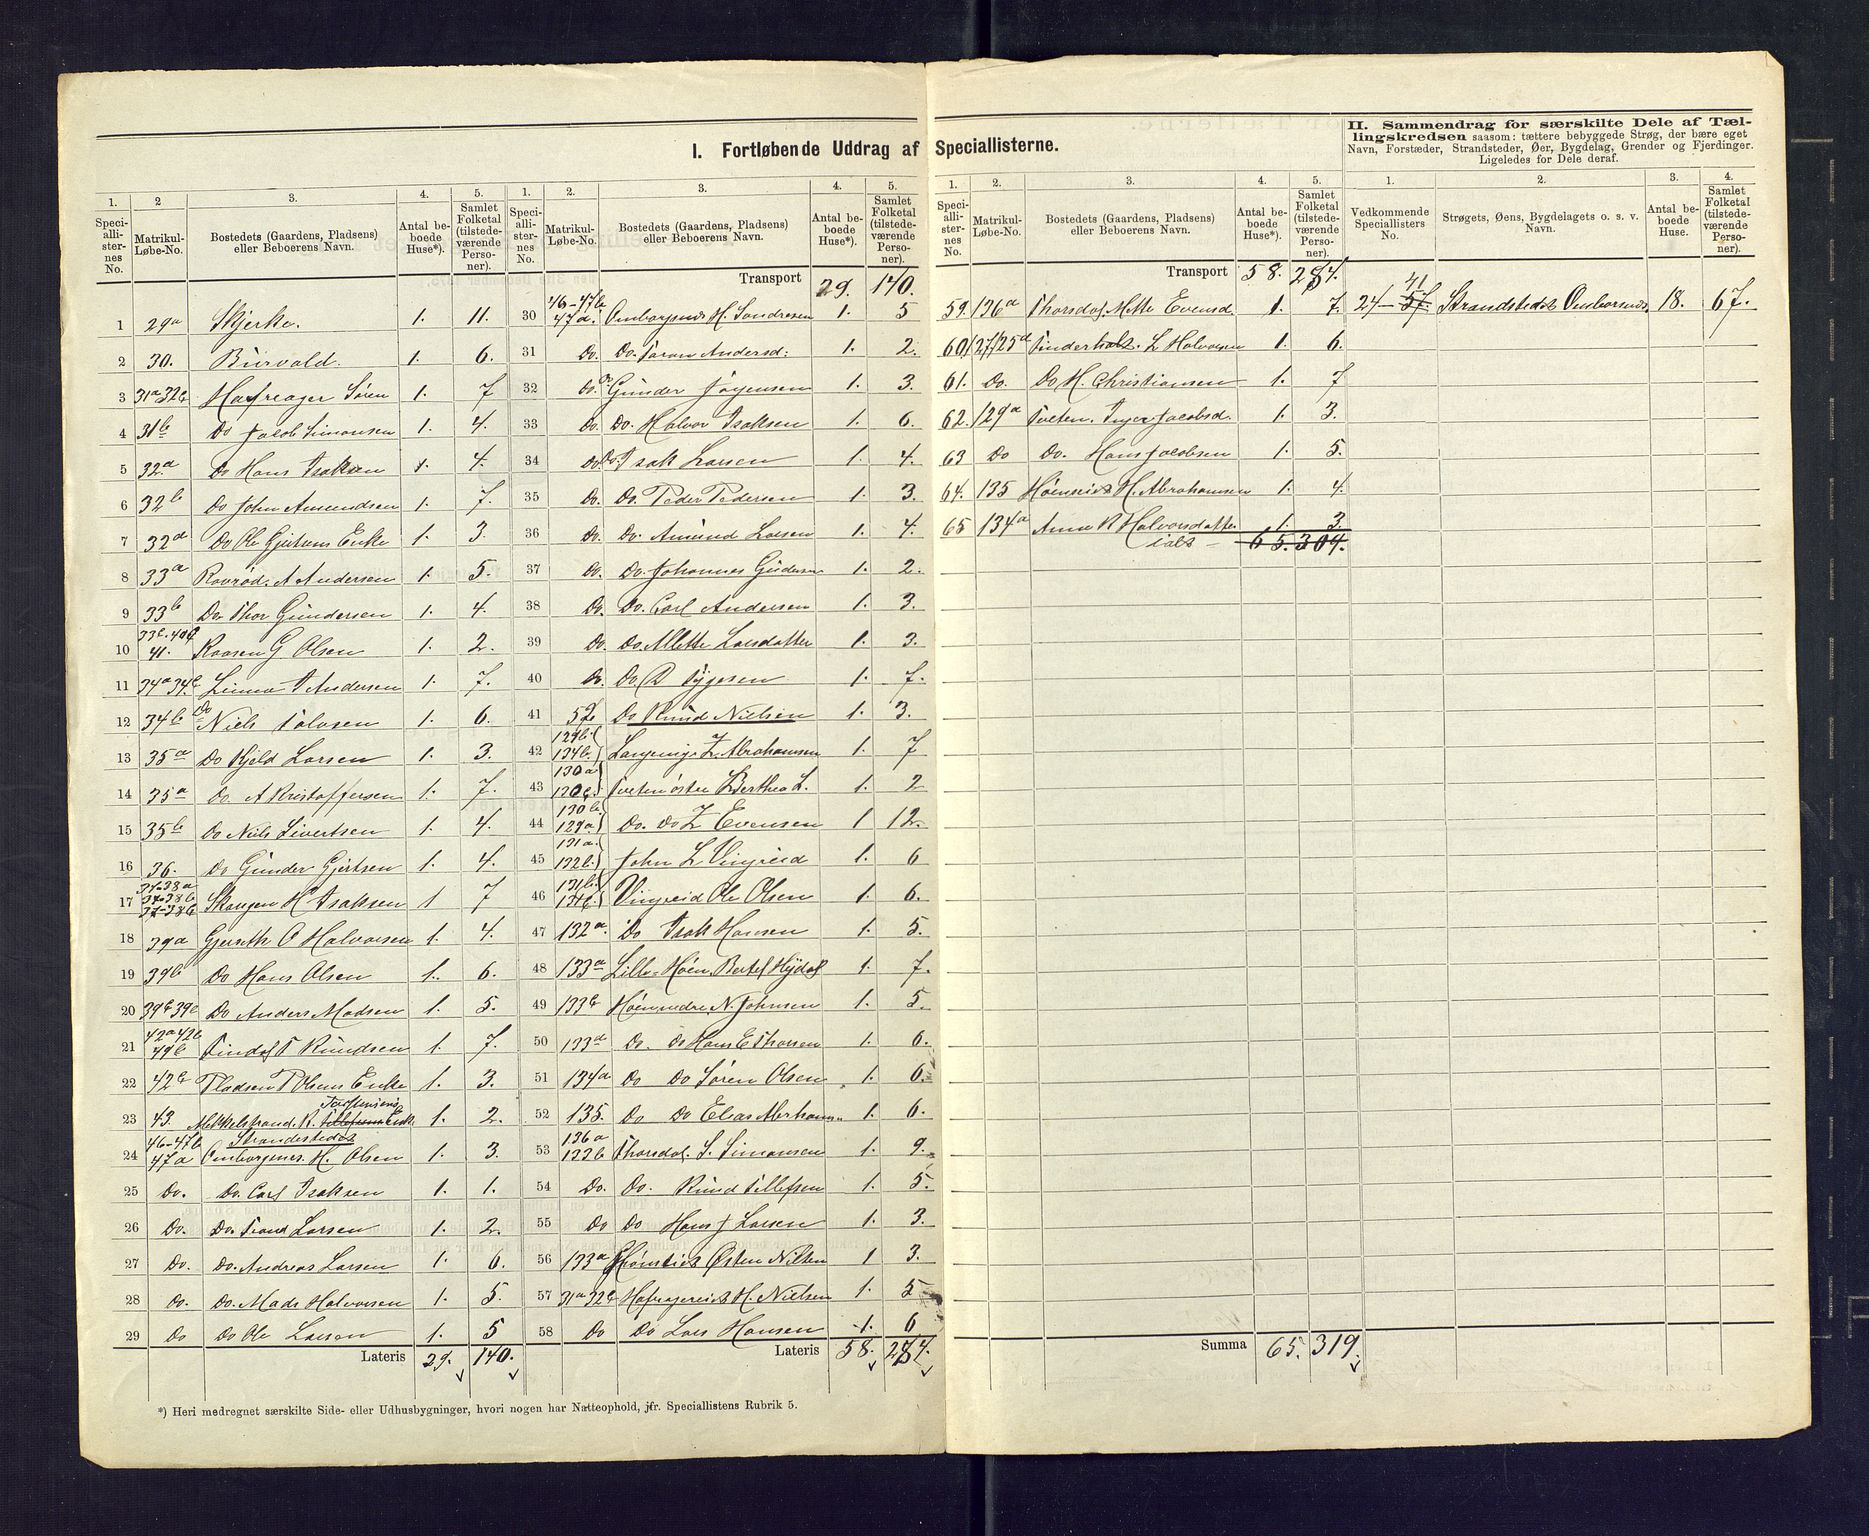 I. Fortløbende Uddrag af Speciallisterne.
II. Sammendrag for særskilte Dele af Tæl-
lingskredsen saasom: tættere bebyggede Strøg, der bære eget
Navn, Forstæder, Strandsteder, Øer, Bygdelag, Grender og Fjerdinger.
Ligeledes for Dele deraf.
1. 2 3. 4. 5.
Speci-alli-ster-nes No. Matrikul-Løbe-No. Bostedets (Gaardens, Pladsens) eller Beboerens Navn. Antal be-boede Huse*). Samlet Folketal (tilstede-værende Perso-ner).
1 29a Skjerke. 1. 11.
2 30. Burvald. 1. 6.
3 31a 32c Hafreager Søren 1. 7
4 31b Do Jacob Simonsen 1. 4.
5 32a Do Hans Isaksen 1. 4.
6 32b Do John Amundsen 1. 7.
7 32d Do Ole Gjertsens Enke 1. 3.
8 33a Ravrød. A Andersen 1. 5.
9 33b Do Thor Gundersen 1. 4.
10 41. Raasen G Olsen 1. 2.
11 34a 34c T Andersen 1. 7.
12 34b Do Niels Tolvsen 1. 6.
13 35a Do Kjeld Larsen 1. 3.
14 35a Do. A Kristoffersen 1. 7.
15 35b Do Niels Sivertsen 1. 4.
16 36. Do Gunder Gjertsen 1. 4.
17 37-38a 37-38b 37-38c Skougen H Isaksen 1 7
18 39a O Halvorsen 1. 4.
19 39b Do Hans Olsen 1. 6.
20 39c 39e Do Anders Madsen 1. 5.
21 42a 42b 49b T Knudsen 1. 7.
22 42c Pladsen Olsens Enke 1. 3.
23 43. Mekkelstrand. K. Enke 1. 2.
24 46-47b 47a Strandstedet Omborgsnes. H. Olsen 1. 3.
25 Do. Do. Carl Isaksen 1. 1.
26 Do. Do. Larsen 1. 2.
27 Do. Do. Andreas Larsen 1. 6.
28 Do. Do. Mads Halvorsen 1. 5.
29 Do Do Ole Larsen 1. 5
Lateris 29. 140.
1. 2. 3. 4. 5.
Speci-alli-ster-nes No. Matrikul-Løbe-No. Bostedets (Gaardens, Pladsens) eller Beboerens Navn. Antal be-boede Huse*). Samlet Folketal (tilstede-værende Perso-ner).
Transport 29. 140.
30 46-47b 47a. Omborgsnes H. Sondresen 1. 5
31 Do. Do. Andersd: 1. 2.
32 Do. Do Gunder Jørgensen 1. 3.
33 Do. Do. Halvor Isaksen 1. 6.
34 Do Do. Isak Larsen 1. 4.
35 Do. Do. Peder Pedersen 1. 3.
36 Do. Do. Amund Larsen 1. 4.
37 Do. Do. Johannes 1. 2.
38 Do. Do. Carl Andersen 1. 3.
39 Do. Do. Mette Larsdatter 1. 3.
40 Do. Do B Tygesen 1. 7.
41 Do Knud Nielsen 1. 3.
42 134b. Z. Abrahamsen 1. 7
43 130a Tveten østre Berthea L. 1. 2
44 130b 129a Do. Do Z Evensen 1 12.
45 131a. John L Vingreid 1. 6
46 131b Vingreid Ole Olsen 1. 6.
47 132a. Do Isak Hansen 1. 5.
48 133a Lille-Høen. Bertel 1. 7.
49 133b Høennedre N. Johnsen 1. 5.
50 133d Do. Do Hans E Thorsen 1. 6.
51 134a Do Do Søren Olsen 1. 6.
52 135. Do Do Elias 1. 6.
53 136a Thorsdal. S. Simonsen 1. 9.
54 Do. Do. Knud Tellefsen 1. 5.
55 Do Do Hans J Larsen 1. 3.
56 133a Østen Nilsen 1 3.
57 31a 32c H. Nielsen 1. 5
58 Do Do Lars Hansen 1. 6
Lateris 58.
*) Heri medregnet særskilte Side- eller Udhusbygninger, hvori nogen har Natteophold, jfr. Speciallistens Rubrik 5.
1. 2. 3. 4. 5.
Speci-alli-ster-nes No. Matrikul-Løbe-No. Bostedets (Gaardens, Pladsens) eller Beboerens Navn. Antal be-boede Huse*). Samlet Folketal (tilstede-værende Perso-ner).
Transport 58.
59. 136a Thorsdal. Mette Evensd. 1. 7.
60 L Halvorsen 1. 6.
61. Do. Do H. Christiansen 1. 7
62. 129a Tveten. Inger Jacobsd. 1. 3.
63 Do Do. Hans Jacobsen 1. 5.
64. 135 H. Abrahamsen 1. 4.
65 134a Anne K Halvorsdatter 1. 3
ialt 65. 304.
Summa 65. 319.
1. 2. 3. 4.
Vedkommende Speciallisters No. Strøgets, Øens, Bygdelagets o. s. v. Navn. Antal be-boede Huse. Samlet Folketal (tilstede-værende Perso-ner).
24-41 Strandstedet Omborsnes 18. 67.